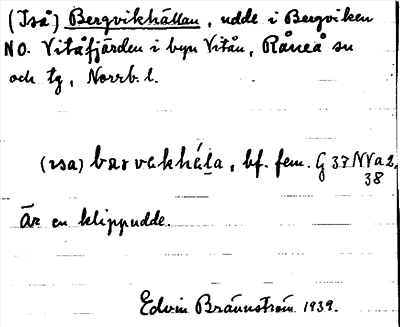 (Iså) Bergvikhällan, udde i Bergviken
NO. Vitåfjärden i byn Vitån, Råneå sn
och tg, Norrb. l.
(ɪsa) barvɛkhála, bf. fem. G 37 NVa 2,
38
Är en klippudde.
Edvin Brännström 1939.